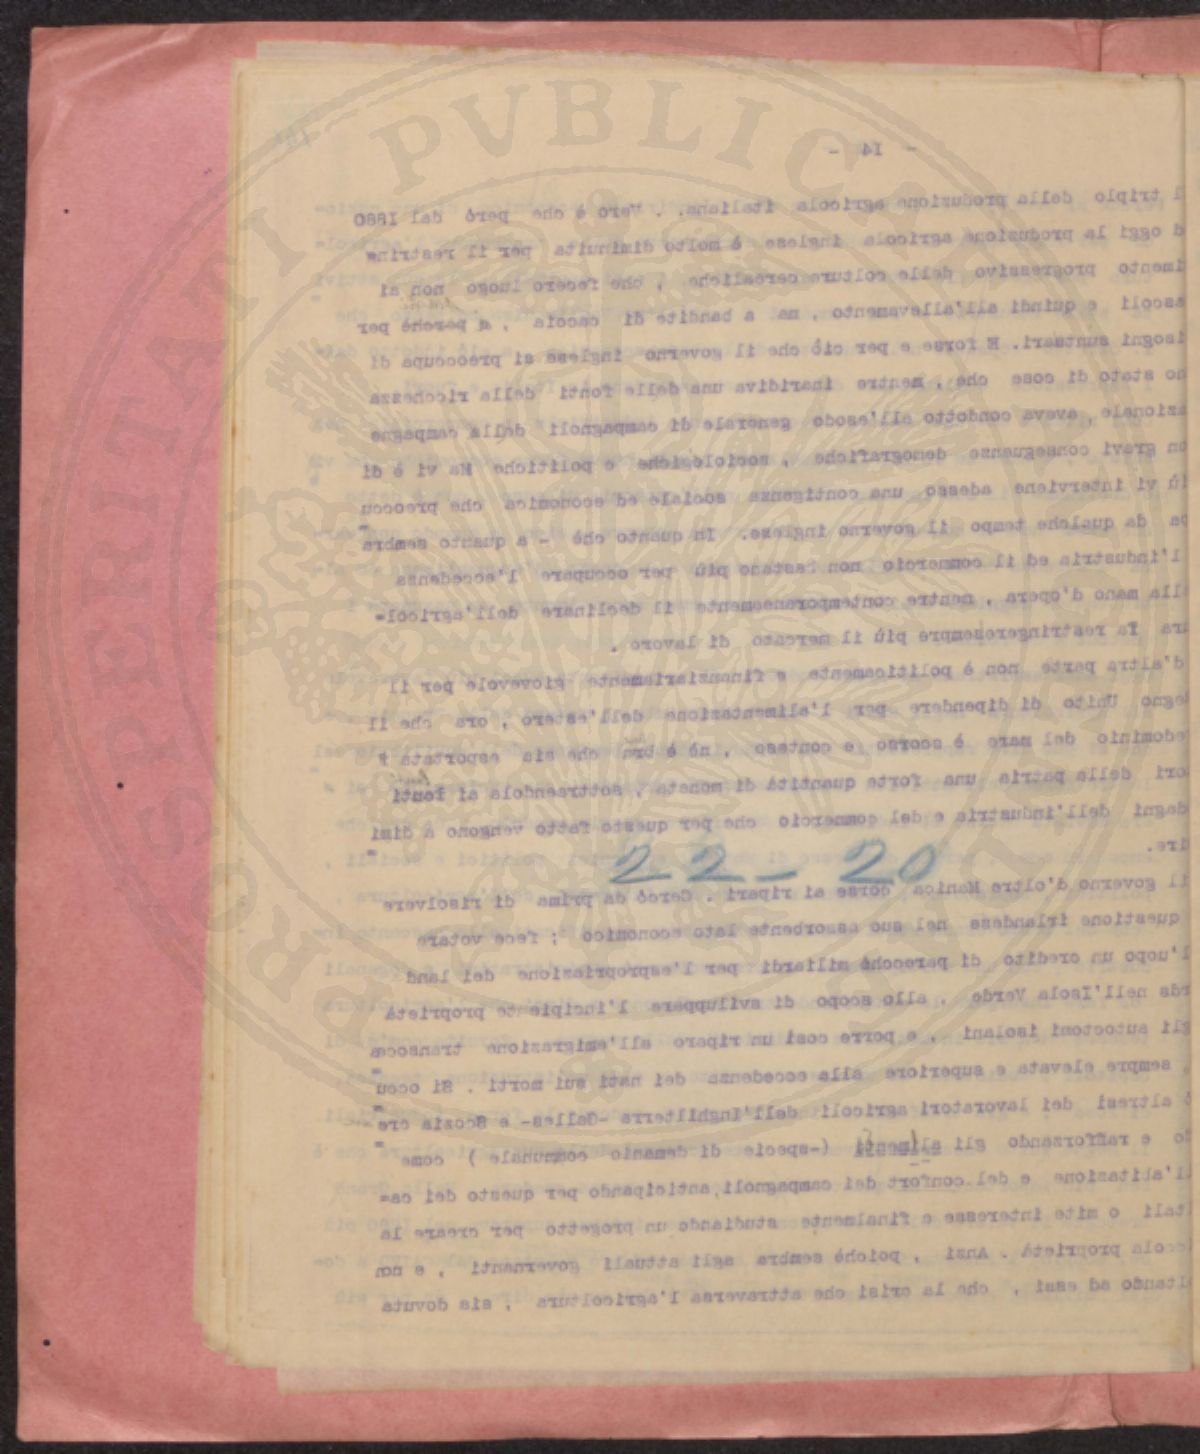 PROSPERITATI PVBLICAE
- I4 -
l triplo della produzione agricola italiana. . Vero è che però dal I880
d oggi la produzione agricola inglese è molto diminuita per il restring
imento progressivo delle colture cerealiche , che fecero luogo non ai
ascoli e quindi all'allevamento , ma a bandite di caccia , perchè per
isogni suntuari. E forse e per ciò che il governo inglese si preoccupa di
no stato di cose che , mentre inaridiva una delle fonti della ricchezza
azionale , aveva condotto all'esodo generale di campagnoli dalla campagne
on gravi conseguenze demografiche , sociologiche e politiche Ma vi è di
iù vi interviene adesso una contigenza sociale ed economica che preoccu
pa da qualche tempo il governo inglese. In quanto chè - a quanto sembra
l'industria ed il commercio non bastano più per occupare l'eccedenza
lla mano d'opera , mentre contemporaneamente il declinare dell'agricol=
ura fa restringeresempre più il mercato di lavoro .
d'altra parte non è politicamente e finanziariamente giovevole per il
egno Unito di dipendere per l'alimentazione dell'estero , ora che il
edominio del mare è scorso e conteso , nè è bra che sia esportata
ori della patria una forte quantità di moneta , sottraendola ai fonti
dagni dell'industria e del commercio che per questo fatto vengono a dimi
ire.
22 - 20
il governo d'oltre Manica corse ai ripari . Cercò da prima di risolvere
questione irlandese nel suo assorbente lato economico ; fece votare
l'uopo un credito di parecchi miliardi per l'espropriazione dei land
rds nell'Isola Verde , allo scopo di sviluppare l'incipiente proprietà
gli autoctoni isolani , e porre così un riparo all'emigrazione transoce
, sempre elevata e superiore alla eccedenza dei nati sui morti . Si occu
ò altresi dei lavoratori agricoli dell'Inghilterra -Galles- e Scozia cre
do e rafforzando gli alimenti (-specie di demanio communale ) come
ll'alitazione e del confort dei campagnoli,anticipando per questo dei ca=
itali o mite interesse e finalmente studiando un progetto per creare la
ccola proprietà . Anzi , poichè sembra agli attuali governanti , e non
ltanto ad essi , che la crisi che attraversa l'agricoltura , sia dovuta